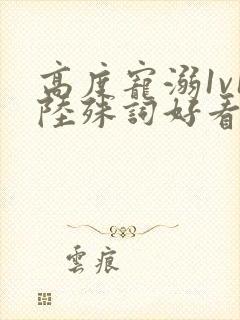 高度寵溺1v1
陸殊詞好看
雲痕